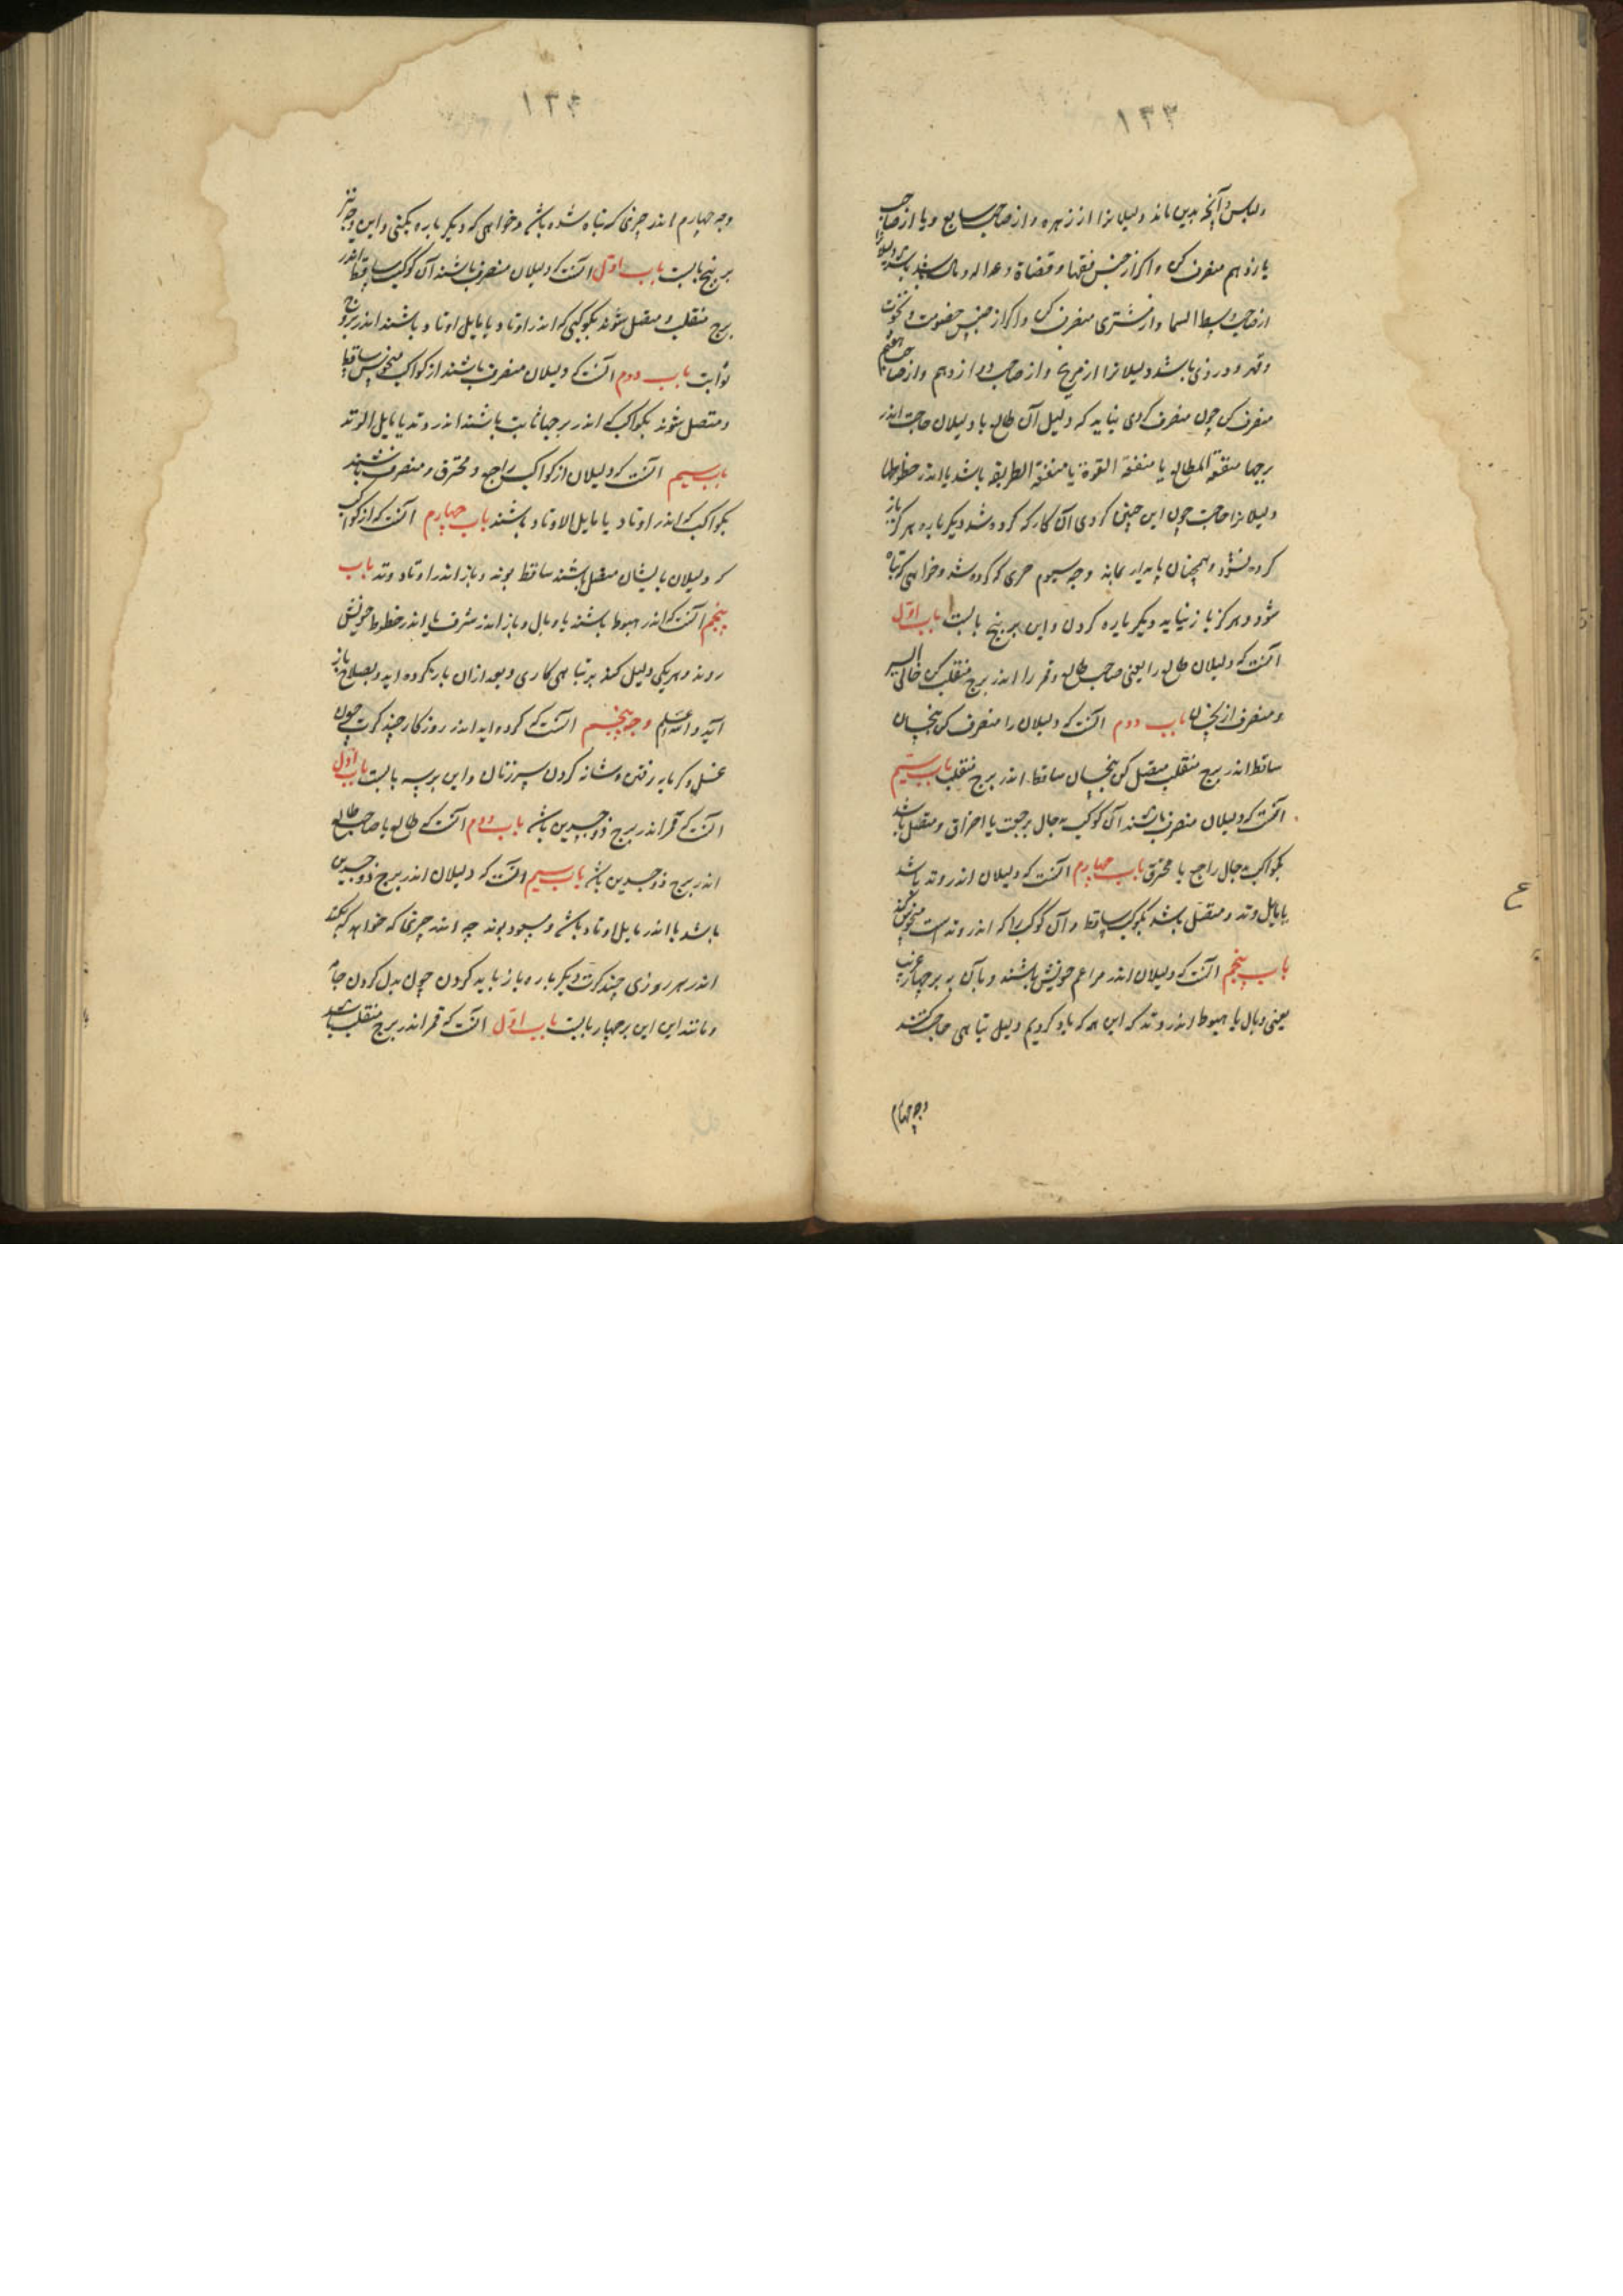 ١٣٣
ولباس و آنچه بدین ماند دلیلانرا از زهره و از صاحب سابع و یا از صاحب
یازدهم منصرف کن و اگر از جنس فقها و قضاة و عدالة و مال باشد دلیلانرا
از صاحب وسط السما و از مشتری منصرف کن و اگر از جنس خصومت و
و قهر و دزدی باشد دلیلانرا از مریخ و از صاحب دوازدهم و از صاحب هفتم
منصرف کن چون منصرف کردی بباید که دلیل آن طالع با دلیلان حاجت اندر
برجها متفقة المطالع یا متفقة القوة یا متفقة الطریقه باشد یا اندر حظوظها
دلیلانرا حاجت چون این چنین کردی آن کار که کرده شد دیگر باره هرگز باز
کرده نشود و همچنان پایدار بماند وجه سیوم چیزی که کرده شد و خواهی که تباه
شود و هرگز باز نیاید دیگر باره کردن و این بر پنج بابست باب اول
آنست که دلیلان طالع را یعنی صاحب طالع و قمر را اندر برج منقلب کن خالی السیر
و منصرف از نحسان باب دوم آنست که دلیلان را منصرف کن بنحسان
ساقط اندر برج منقلب متصل کن بنحسان ساقط اندر برج منقلب باب سیم
آنست که دلیلان منصرف باشند از کوکب بحال رجعت یا احتراق و متصل باشد
بکواکب بحال راجع یا محترق باب چهارم آنست که دلیلان اندر وتد باشد
یا مایل وتد و متصل باشد بکوکب ساقط و آن کوکب را که اندر وتد است منحوس کند
باب پنجم آنست که دلیلان اندر مراغم خویش باشند و بآن به برجهاء غریب
یعنی وبال یا هبوط اندر وتد که این همه که یاد کردیم دلیل تباهی حاجت کنند
وجه چهارم
ع
١٣٤
وجه چهارم اندر چیزی که تباه شده باشد و خواهی که دیگر باره بکنی و این وجه نیز
بر پنج بابست باب اول آنست که دلیلان منصرف باشند از کوکب ساقط اندر
برج منقلب و متصل شوند بکوکبی که اندر اوتاد یا مایل اوتاد باشند اندر بروج
ثوابت باب دوم آنست که دلیلان منصرف باشند از کواکب منحوس ساقط
و متصل شوند بکواکب که اندر برجها ثابت باشند اندر وتد یا مایل الوتد
باب سیم آنست که دلیلان از کواکب راجع و محترق منصرف باشند
بکواکب که اندر اوتاد یا مایل الاوتاد باشند باب چهارم آنست که از کواکب
که دلیلان بایشان متصل باشند ساقط بوند و باز اندر اوتاد وتد باب
پنجم آنست که اندر هبوط باشند یا وبال و باز اندر شرف یا اندر حظوظ خویش
روند و هر یکی دلیل کند بر تباهی کاری و بعد از آن باز کرده آید و بصلاح باز
آید و الله اعلم وجه پنجم آنست که کرده آید اندر روزگار چند کرت چون
غسل و گرمابه رفتن و شانه کردن سر زنان و این بر سه بابست باب اول
آنست که قمر اندر برج ذو جسدین باشد باب دوم آنست که طالع یا صاحب طالع
اندر برج ذو جسدین باشد باب سیم آنست که دلیلان اندر برج ذو جسدین
باشد یا اندر مایل اوتاد باشد و مسعود بوند چه اندر چیزها که خواهد که بکند
اندر هر روزی چند کرت دیگر باره باز باید کردن چون بدل کردن جامه
و مانند این این بر چهار بابست باب اول آنست که قمر اندر برج منقلب باشد